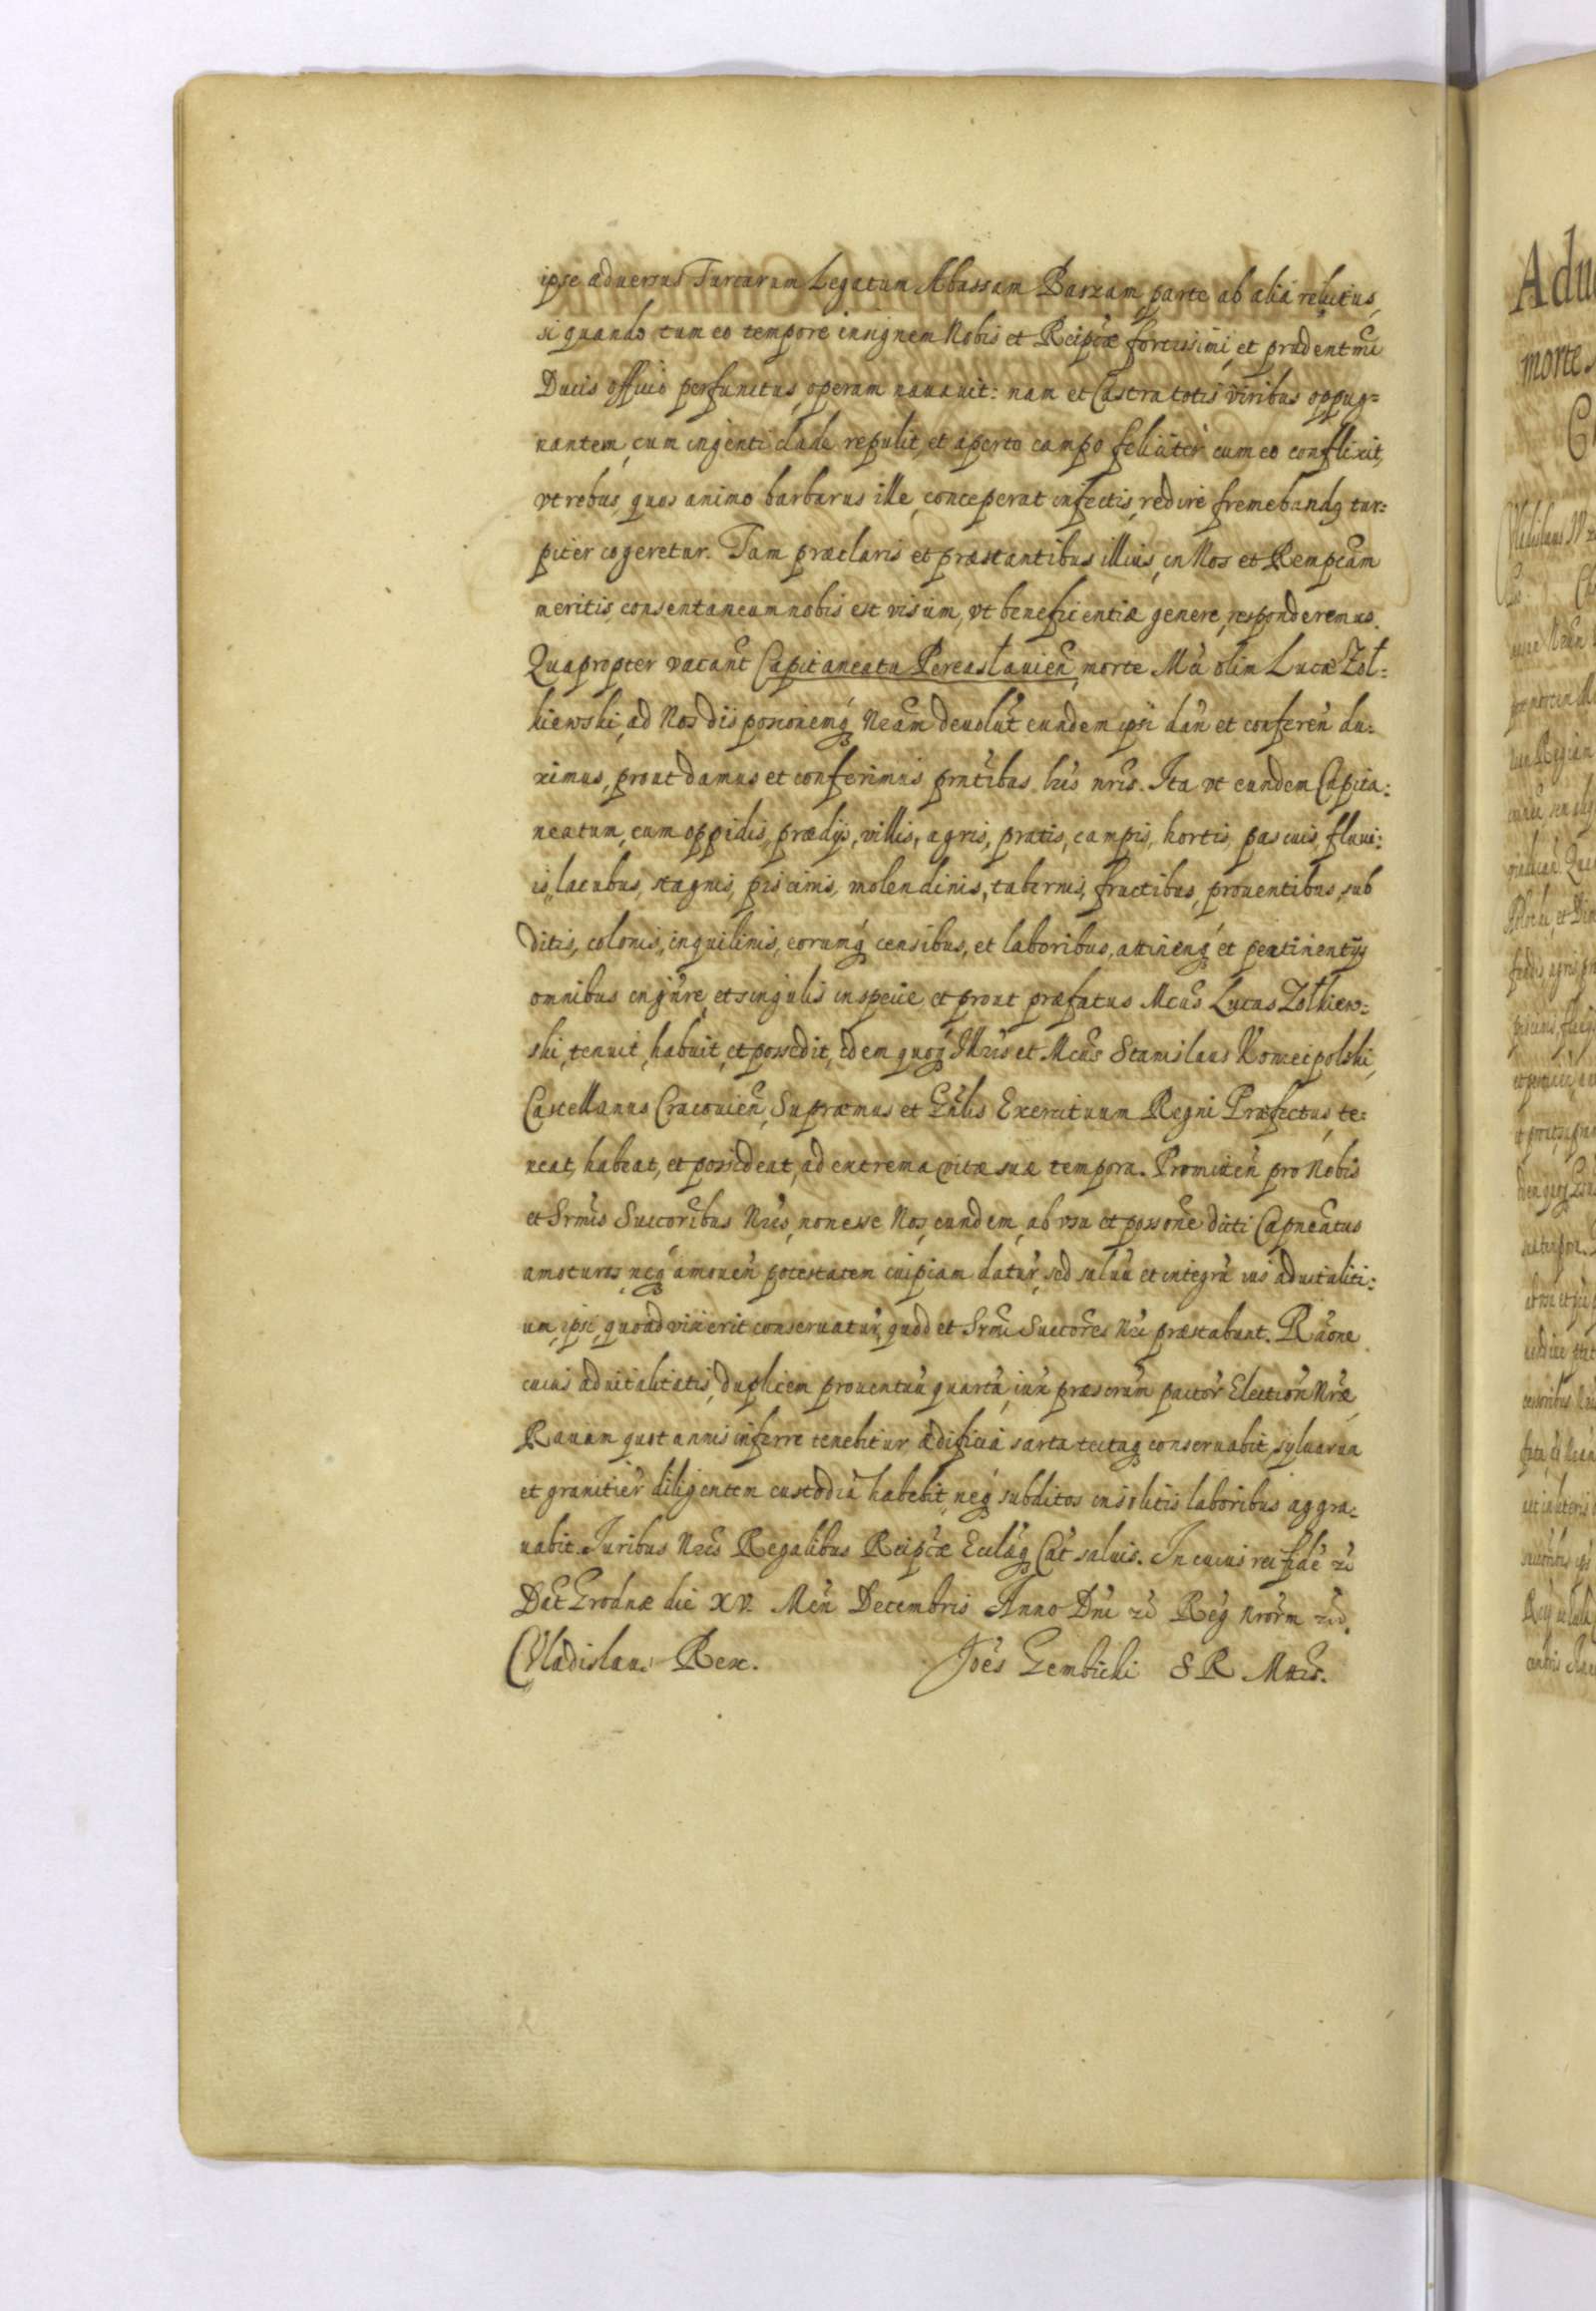 ipse aduersus Turcarum Legatum Abassam Baszam, parte ab aliá relictus,
si quando tum eo tempore insignem Nobis et Reipcæ fortissimi, et prudentmi
Ducis officio perfunctus, operam nauauit: nam et Castra totis viribus oppug=
nantem, cum ingenti clade repulit, et aperto campo feliciter cum eo conflixit,
vt rebus, quos animo barbarus ille, conceperat infectis, redire fremebundq tur:
piter cogeretur. Tam præclaris et præstantibus illius, in Nos et Rempcam
meritis, consentaneum nobis est visum, vt beneficientiæ genere, responderemus.
Quapropter vacant Capitaneatu Pereasłauien, morte Mci olim Lucæ Żoł:
kiewski, ad Nos disposionemq Nram deuolut eundem ipsi dan et conferen du:
ximus, prout damus et conferimus prntibus lris nris. Ita vt eundem Capita:
neatum, cum oppidis, prædijs, villis, agris, pratis, campis, hortis, pascuis, fluui:
is, lacubus, stagnis, piscinis, molendinis, tabernis, fructibus, prouentibus, sub
ditis, colonis, inquilinis, eorumq censibus, et laboribus, attinenq et pertinentijs
omnibus in genre, et singulis in specie et prout præfatus Mcus Lucas Żołkiew:
ski, tenuit, habuit, et possedit, idem quoq Illris et Mcus Stanislaus Koniecpolski,
Castellanus Cracouien, Supræmus et Gnlis Exercituum Regni Præfectus, te:
neat, habeat, et possideat, ad extrema vitæ suæ tempora. Promitten pro Nobis
et Srmis Succoribus Nris, non esse Nos, eundem, ab vsu et possone dicti Capneatus
amoturos, neq amouen potestatem cuipiam datur, sed saluu et integru ius aduitaliti:
um, ipsi, quoad vixerit conseruatur, quod et Srmi Succores Nri præstabunt. Raone
cuius aduitalitatis, duplicem prouentuu quartu, iux præscrum pactor Election Nræ
Rauam quot annis inferre tenebitur, ædificia sarta tectaq conseruabit, syluarua
et granitier diligentem custodia habebit, neq subditos insolitis laboribus aggra:
uabit. Iuribus Nris Regalibus Reipcæ Ecclaq Cat saluis. In cuius rei fide
Dat Grodnæ die XV. Men Decembris Anno Dni Reg nrorm
Vladislaus Rex. Joes Gembicki S R Mttis.